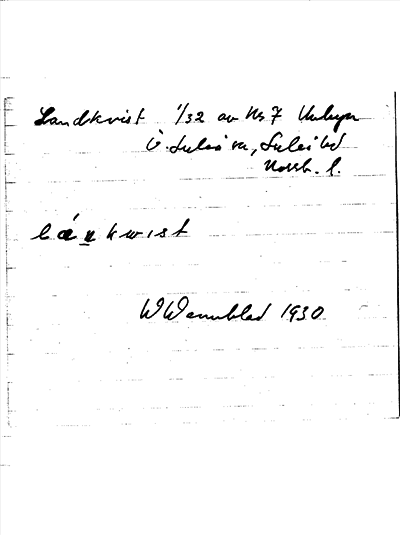 Landkvist 1/32 av Nr 7 Unbyn
Ö. Luleå sn, Luleå td
Norrb. l.
lánkwist
W Wennblad 1930